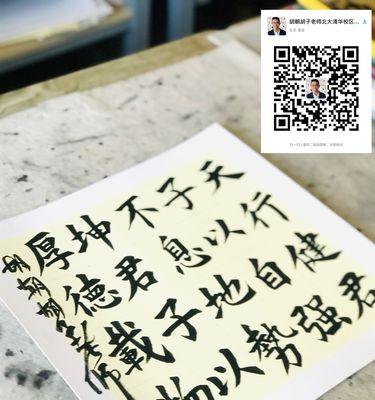 胡朝胡子老师北大清华校区...
北京 海淀
扫一扫上面的二维码图案，加我微信
天行健君
子以自强
不息地勢
坤君子以
厚德載物
胡朝胡子老师